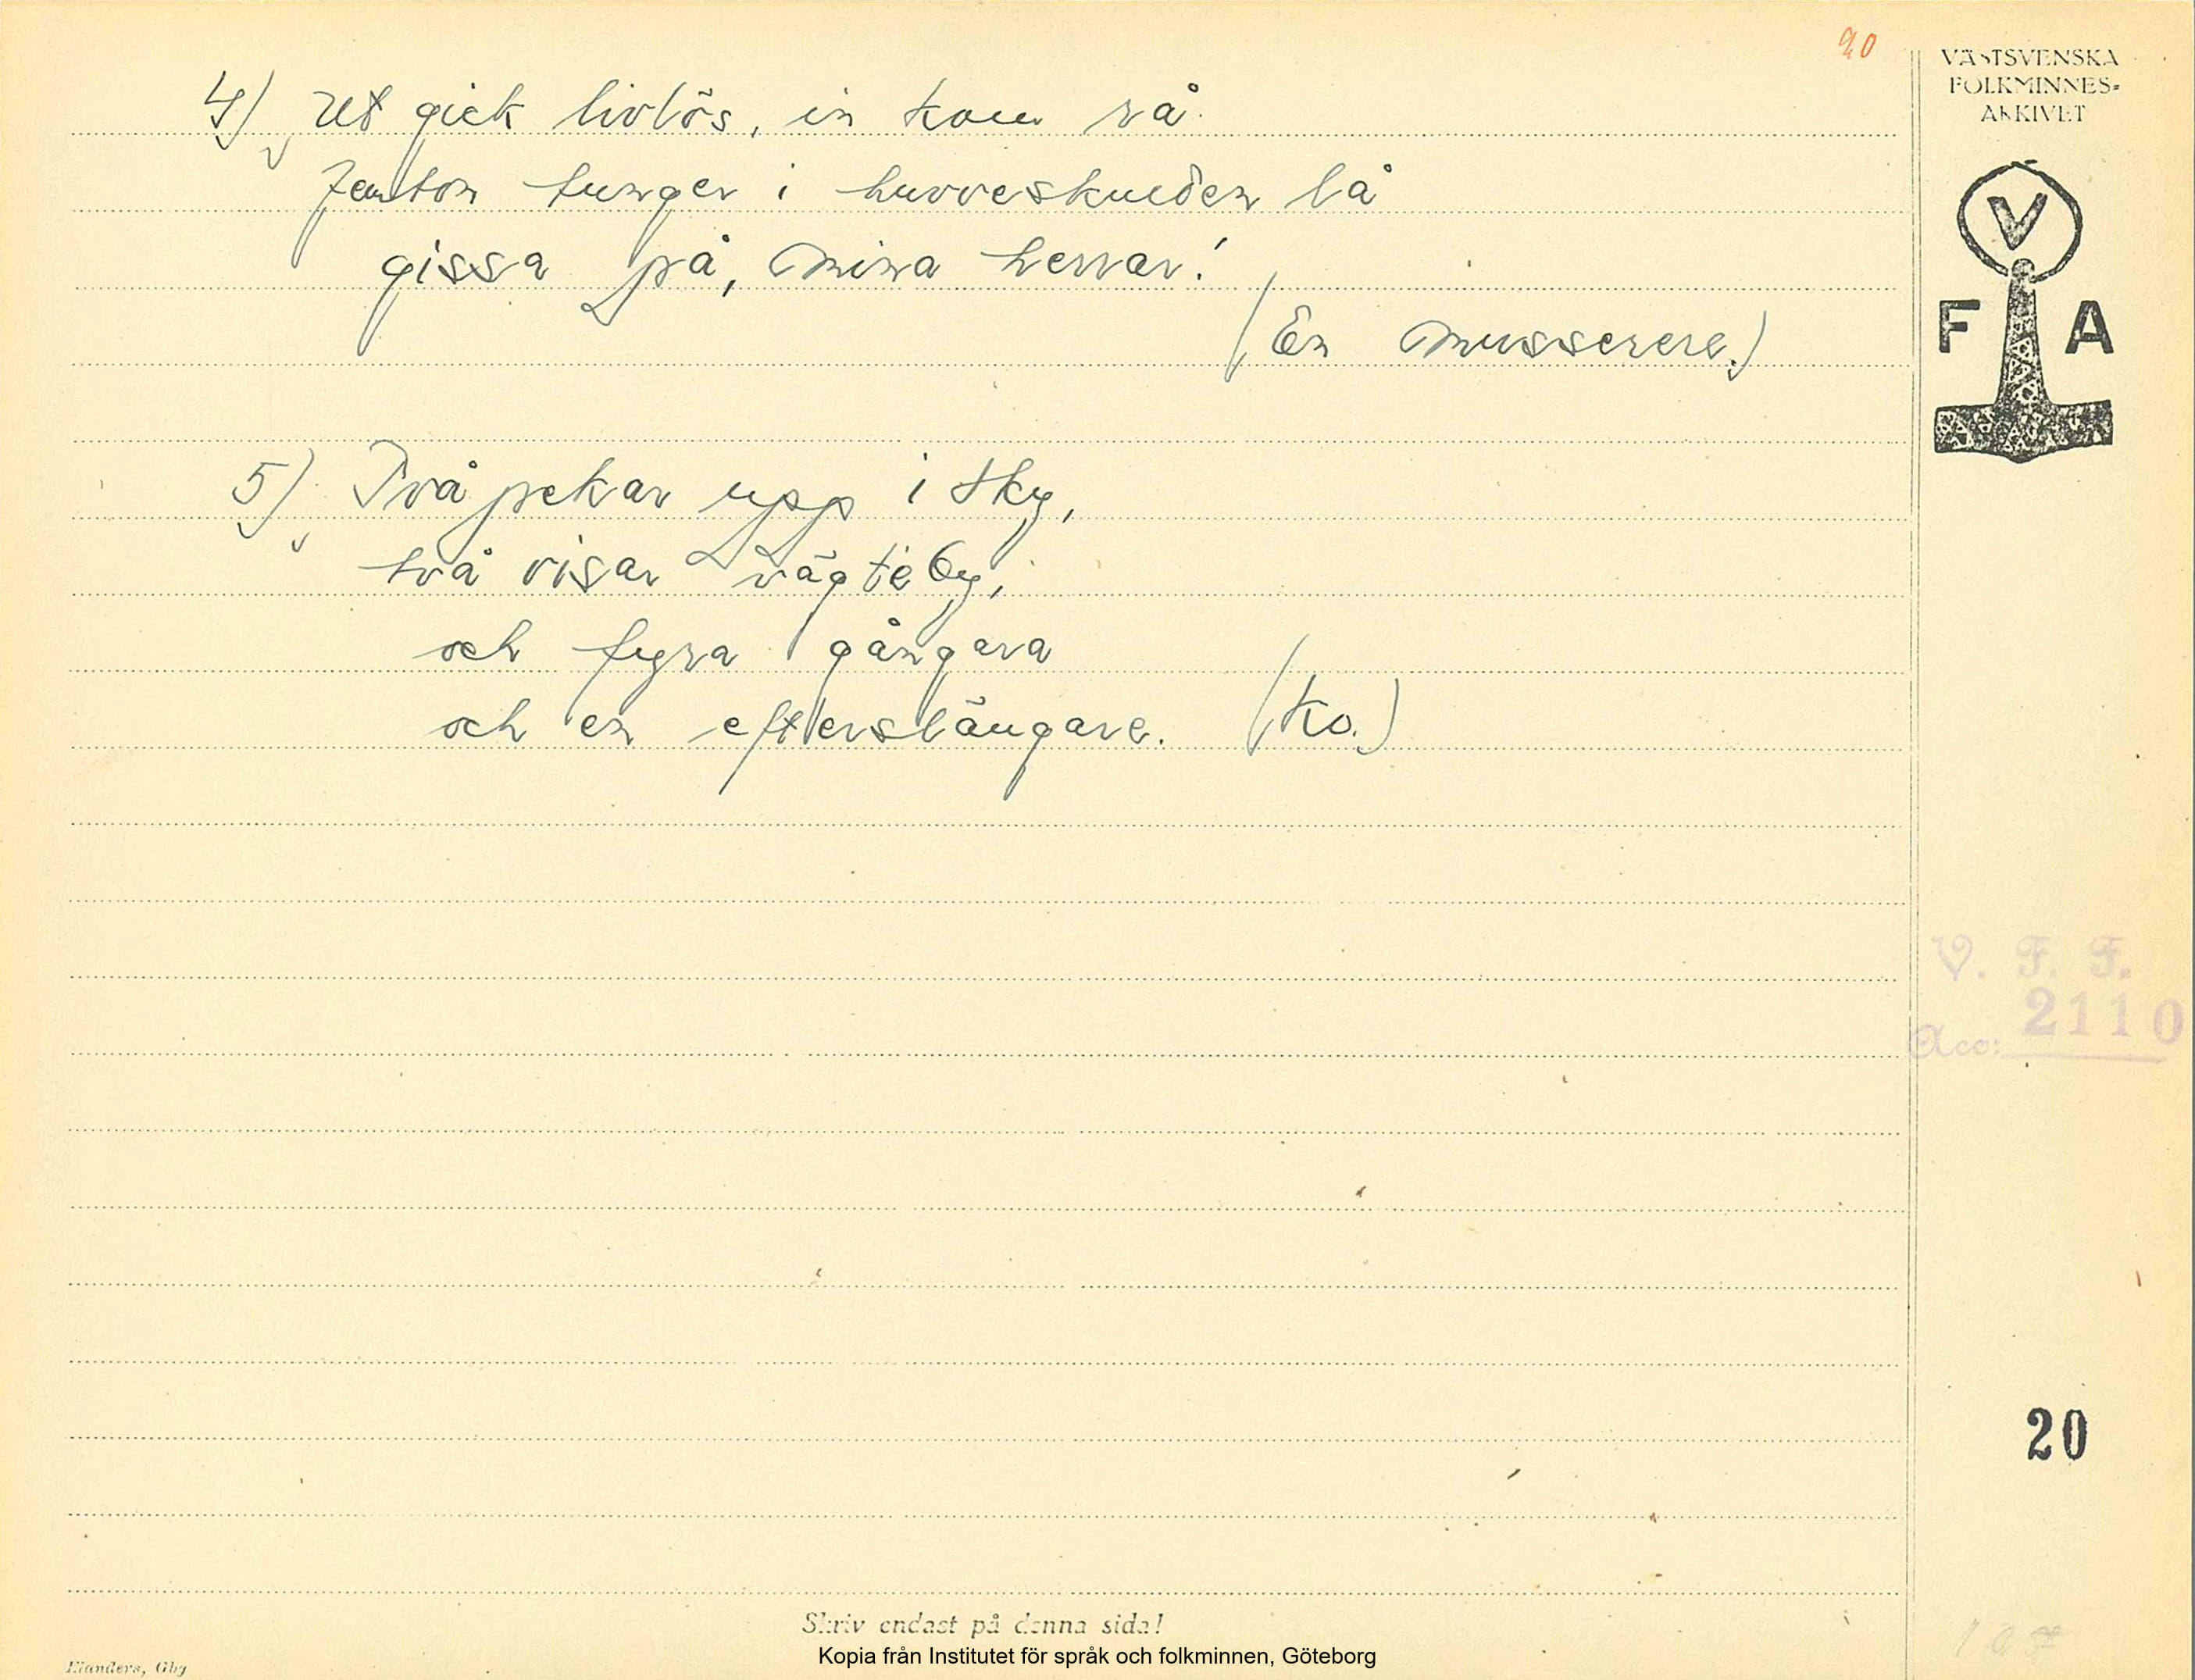 20
VÄSTSVENSKA
FOLKMINNES-
ARKIVET
V
F A
4) Ut gick livlös, in kom rå
femton tunger i huvveskueden lå
gissa på, mina herrar!
(En musserere.)
5) Två pekar upp i sky,
två visar väg te by,
och fyra gångara
och en efterslängare. (Ko.)
V. F. F.
Acc: 2110
20
Skriv endast på denna sida!
Kopia från Institutet för språk och folkminnen, Göteborg
Elanders, Gbg